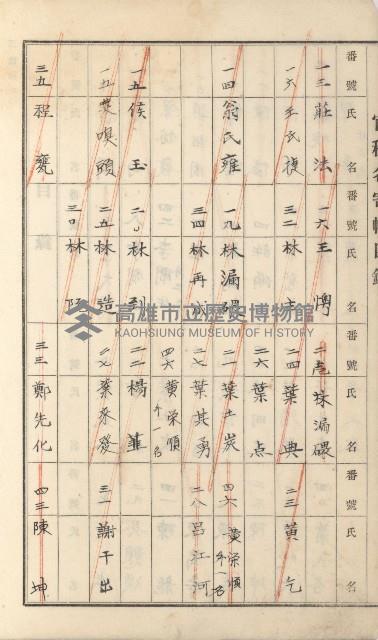 番號 氏名
一三 莊法
一六 王氏
一四 翁氏雍
一五 侯玉
一五 龔嗅頭
三五 程甕
番號 氏名
一六 王
三二 林
一九 林漏碨
三四 林再成
二八 林到
二五 林造
三〇 林
番號 氏名
二壱 林漏碨
二四 葉典
二六 葉点
二一 葉土炭
二七 葉其勇
四六 黄榮順 外一名
二二 楊韮
二七 葉來發
三三 鄭先化
番號 氏名
二三 黄乞
四六 黄榮順 外一名
二八 呂江河
三一 謝干出
四三 陳坤
高雄市立歷史博物館
KAOHSIUNG MUSEUM OF HISTORY